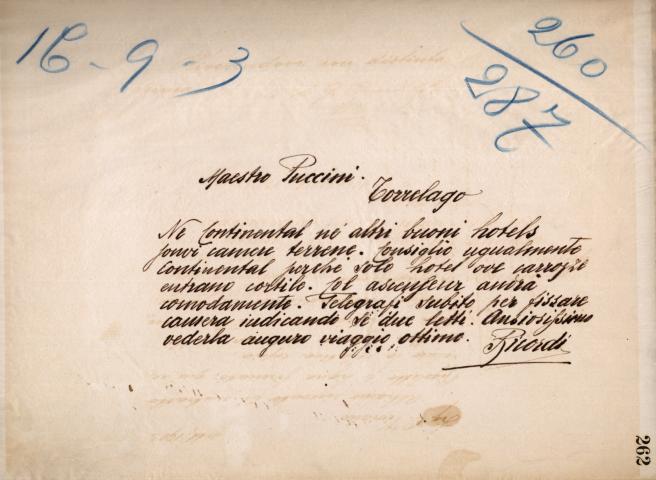 16-9-3
260
287
Maestro Puccini.
Torrelago
Nè Continental nè altri buoni hotels
sonvi camere terrene. Consiglio ugualmente
Continental perchè solo hotel ove carrozze
entrano cortile. Col ascenseur andrà
comodamente. Telegrafi subito per fissare
camera indicando se due letti. Ansiosissimo
vederla auguro viaggio ottimo.
Ricordi
262